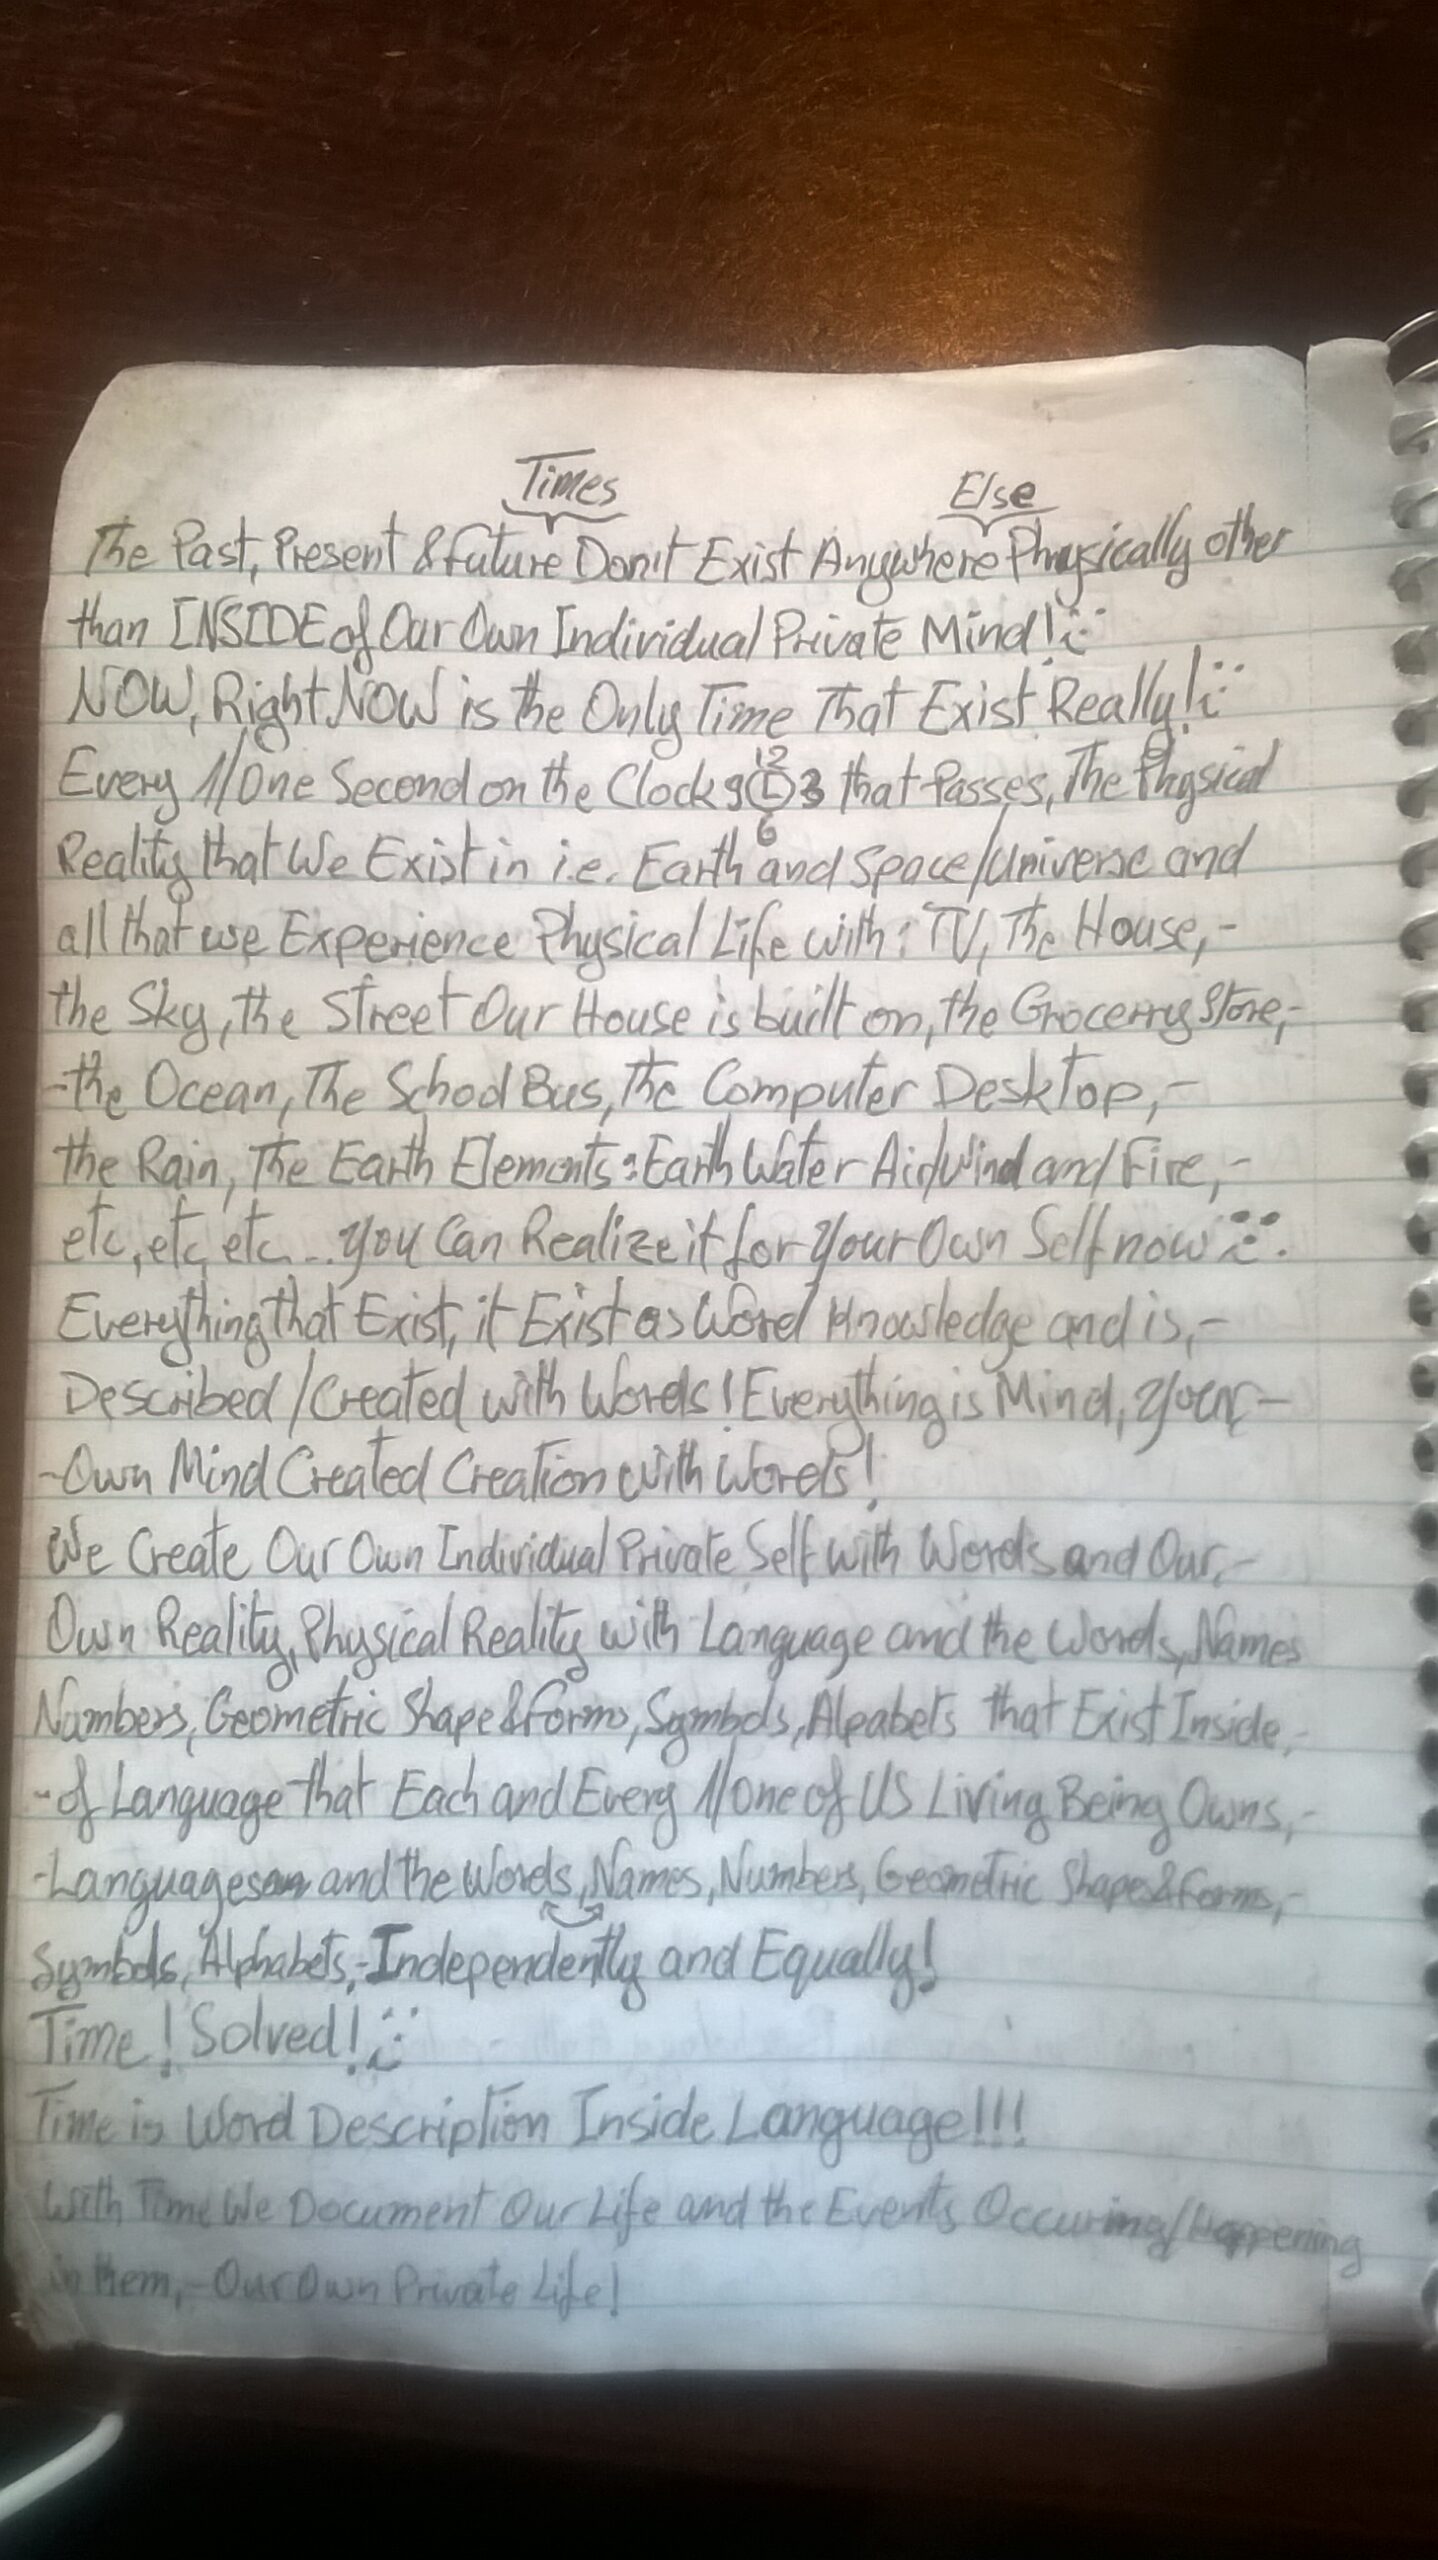 Times Else
The Past, Present & future Don't Exist Anywhere Physically other
than INSIDE of Our Own Individual Private Mind!
NOW, Right NOW is the Only Time That Exist Really!
Every 1/One Second on the Clock 9 12 3 6 that Passes, The Physical
Reality that We Exist in i.e. Earth and Space/Universe and
all that we Experience Physical Life with: TV, The House,-
the Sky, the Street Our House is built on, the Grocerry Store,-
-the Ocean, The School Bus, The Computer Desktop,-
the Rain, The Earth Elements: Earth Water Air/Wind and Fire,-
etc, etc, etc... you Can Realize it for your Own Self now
Everything that Exist, it Exist as Word Knowledge and is,-
Described/Created with Words! Everything is Mind, your,-
-Own Mind Created Creation With Words!
We Create Our Own Individual Private Self with Words and Our,-
Own Reality, Physical Reality with Language and the Words, Names
Numbers, Geometric Shape & forms, Symbols, Alpabets that Exist Inside,-
-of Language that Each and Every 1/One of US Living Being Owns,-
-Languages and the Words, Names, Numbers, Geometric Shape & forms,-
Symbols, Alphabets,-Independently and Equally!
Time! Solved!
Time is Word Description Inside Language!!!
With Time We Document Our Life and the Events Occuring/Happening
in them,- Our Own Private Life!